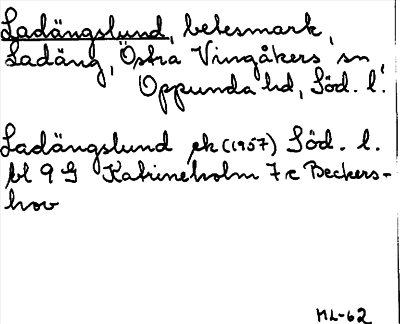 Ladängslund, betesmark,
Ladäng, Östra Vingåkers sn,
Oppunda hd, Söd. l.
Ladängslund ek (1957) Söd. l.
bl 9 G Katrineholm 7 c Beckers-
hov
ML-62